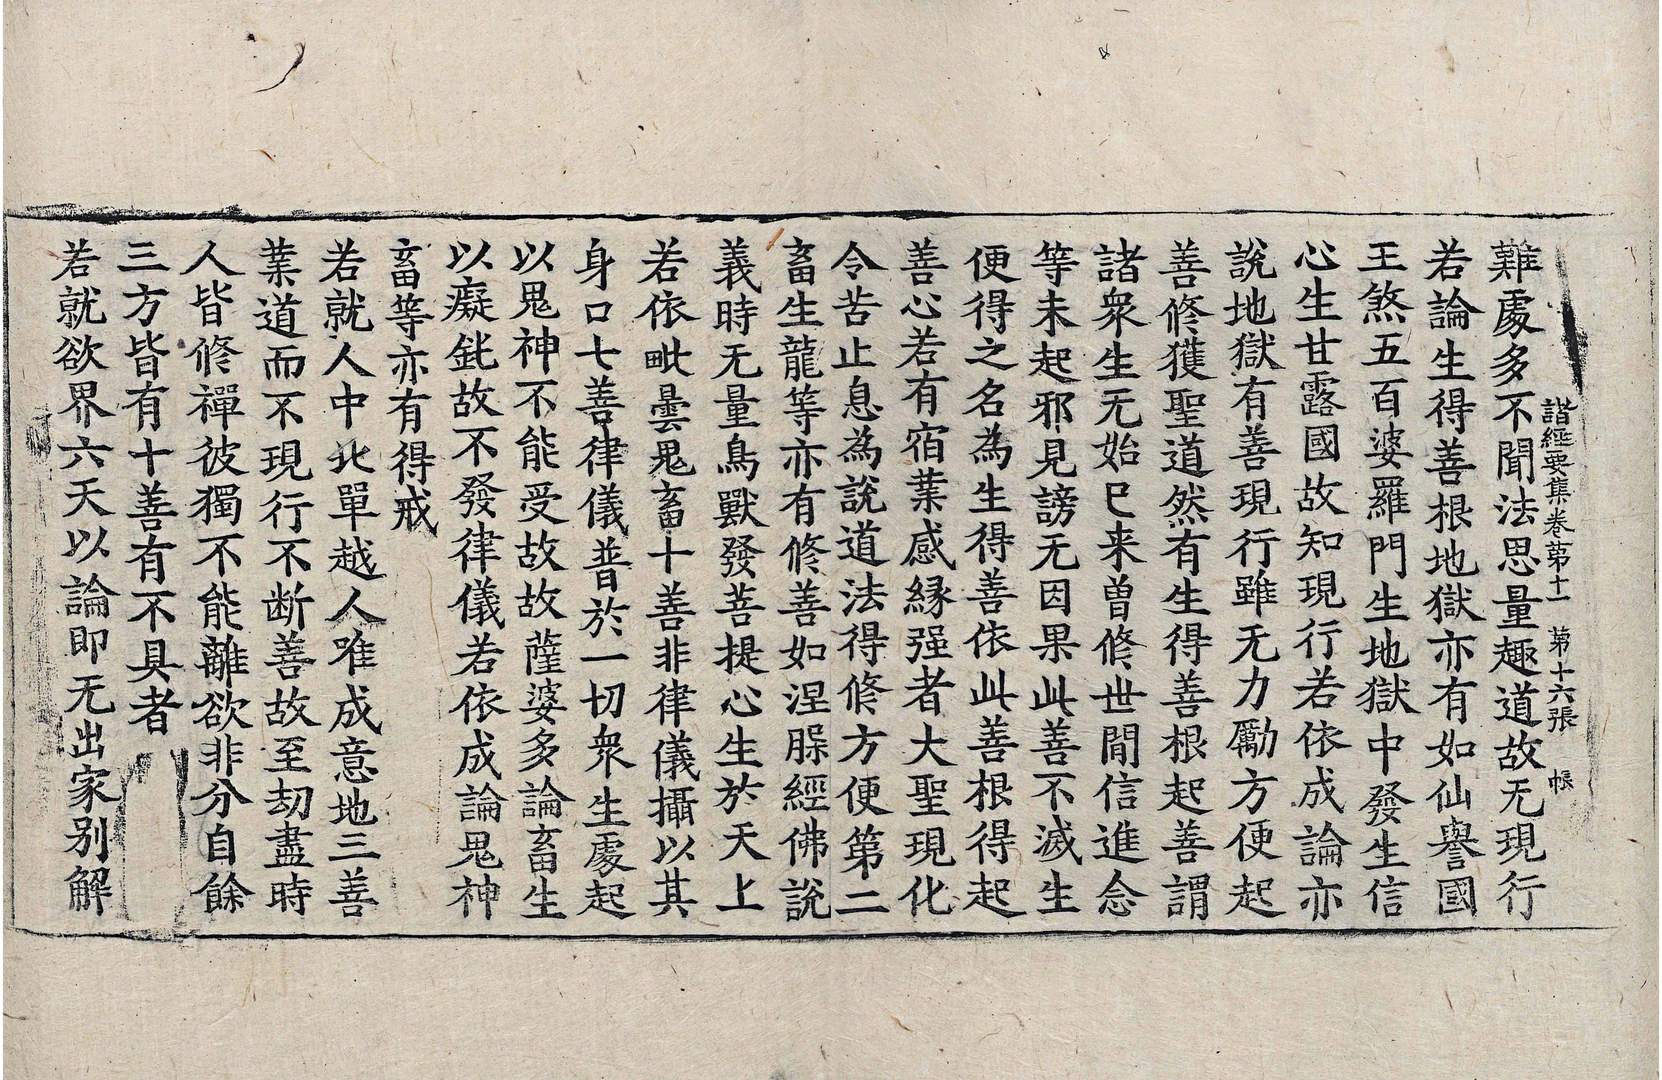 諸經要集卷第十一　第十六張　帳
難處多不聞法思量趣道故无現行
若論生得善根地獄亦有如仙譽國
王煞五百婆羅門生地獄中發生信
心生甘露國故知現行若依成論亦
說地獄有善現行雖无力勵方便起
善修獲聖道然有生得善根起善謂
諸衆生无始已来曾修世間信進念
等未起邪見謗无因果此善不滅生
便得之名為生得善依此善根得起
善心若有宿業感縁强者大聖現化
令苦止息為說道法得修方便第二
畜生龍等亦有修善如涅脲經佛說
義時无量鳥獸發菩提心生於天上
若依毗曇鬼畜十善非律儀攝以其
身口七善律儀普於一切衆生處起
以鬼神不能受故故薩婆多論畜生
以癡鈍故不發律儀若依成論鬼神
畜等亦有得戒
若就人中北單越人唯成意地三善
業道而不現行不断善故至劫盡時
人皆修禪彼獨不能離欲非分自餘
三方皆有十善有不具者
若就欲界六天以論即无出家别解